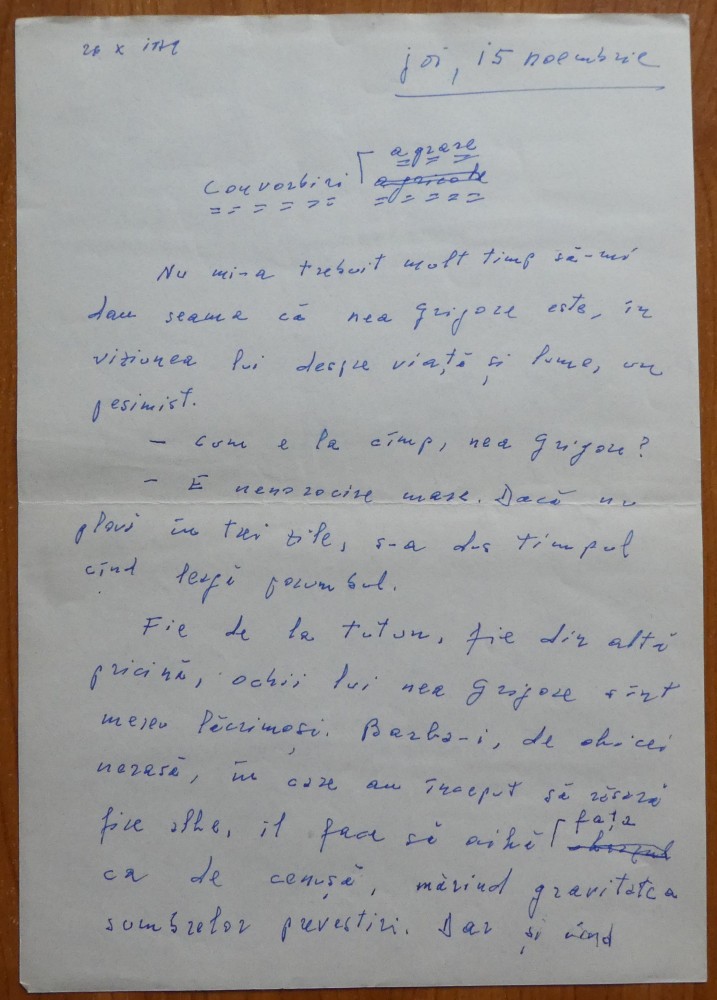 joi, 15 noembrie
agrare
Convorbiri agricole
Nu mi-a trebuit mult timp să-mi
dau seama că nea Grigore este, în
viziunea lui despre viață și lume, un
pesimist.
– Cum e la cîmp, nea Grigore?
– E nenorocire mare. Dacă nu
plouă în trei zile, s-a dus timpul
cînd leagă porumbul.
Fie de la tutun, fie din altă
pricină, ochii lui nea Grigore sînt
mereu lăcrimoși. Barba-i, de obicei
nerasă, în care au început să răsară
fire albe, îl face să aibă fața
obrazul
ca de cenușă, mărind gravitatea
sumbrelor prevestiri. Dar și cînd